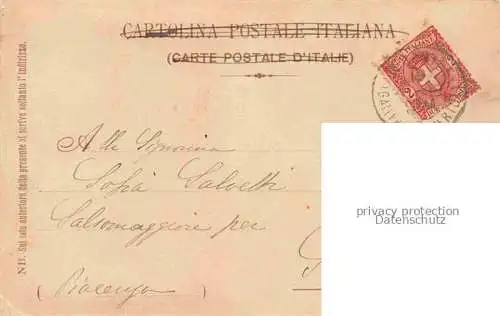 CARTOLINA POSTALE ITALIANA
(CARTE POSTALE D'ITALIE)
NB. Sul lato anteriore della presente si scrive soltanto l'indirizzo.
Alla Signorina
Sofia Salvetti
Salsomaggiore per
(Piacenza)
privacy protection
Datenschutz